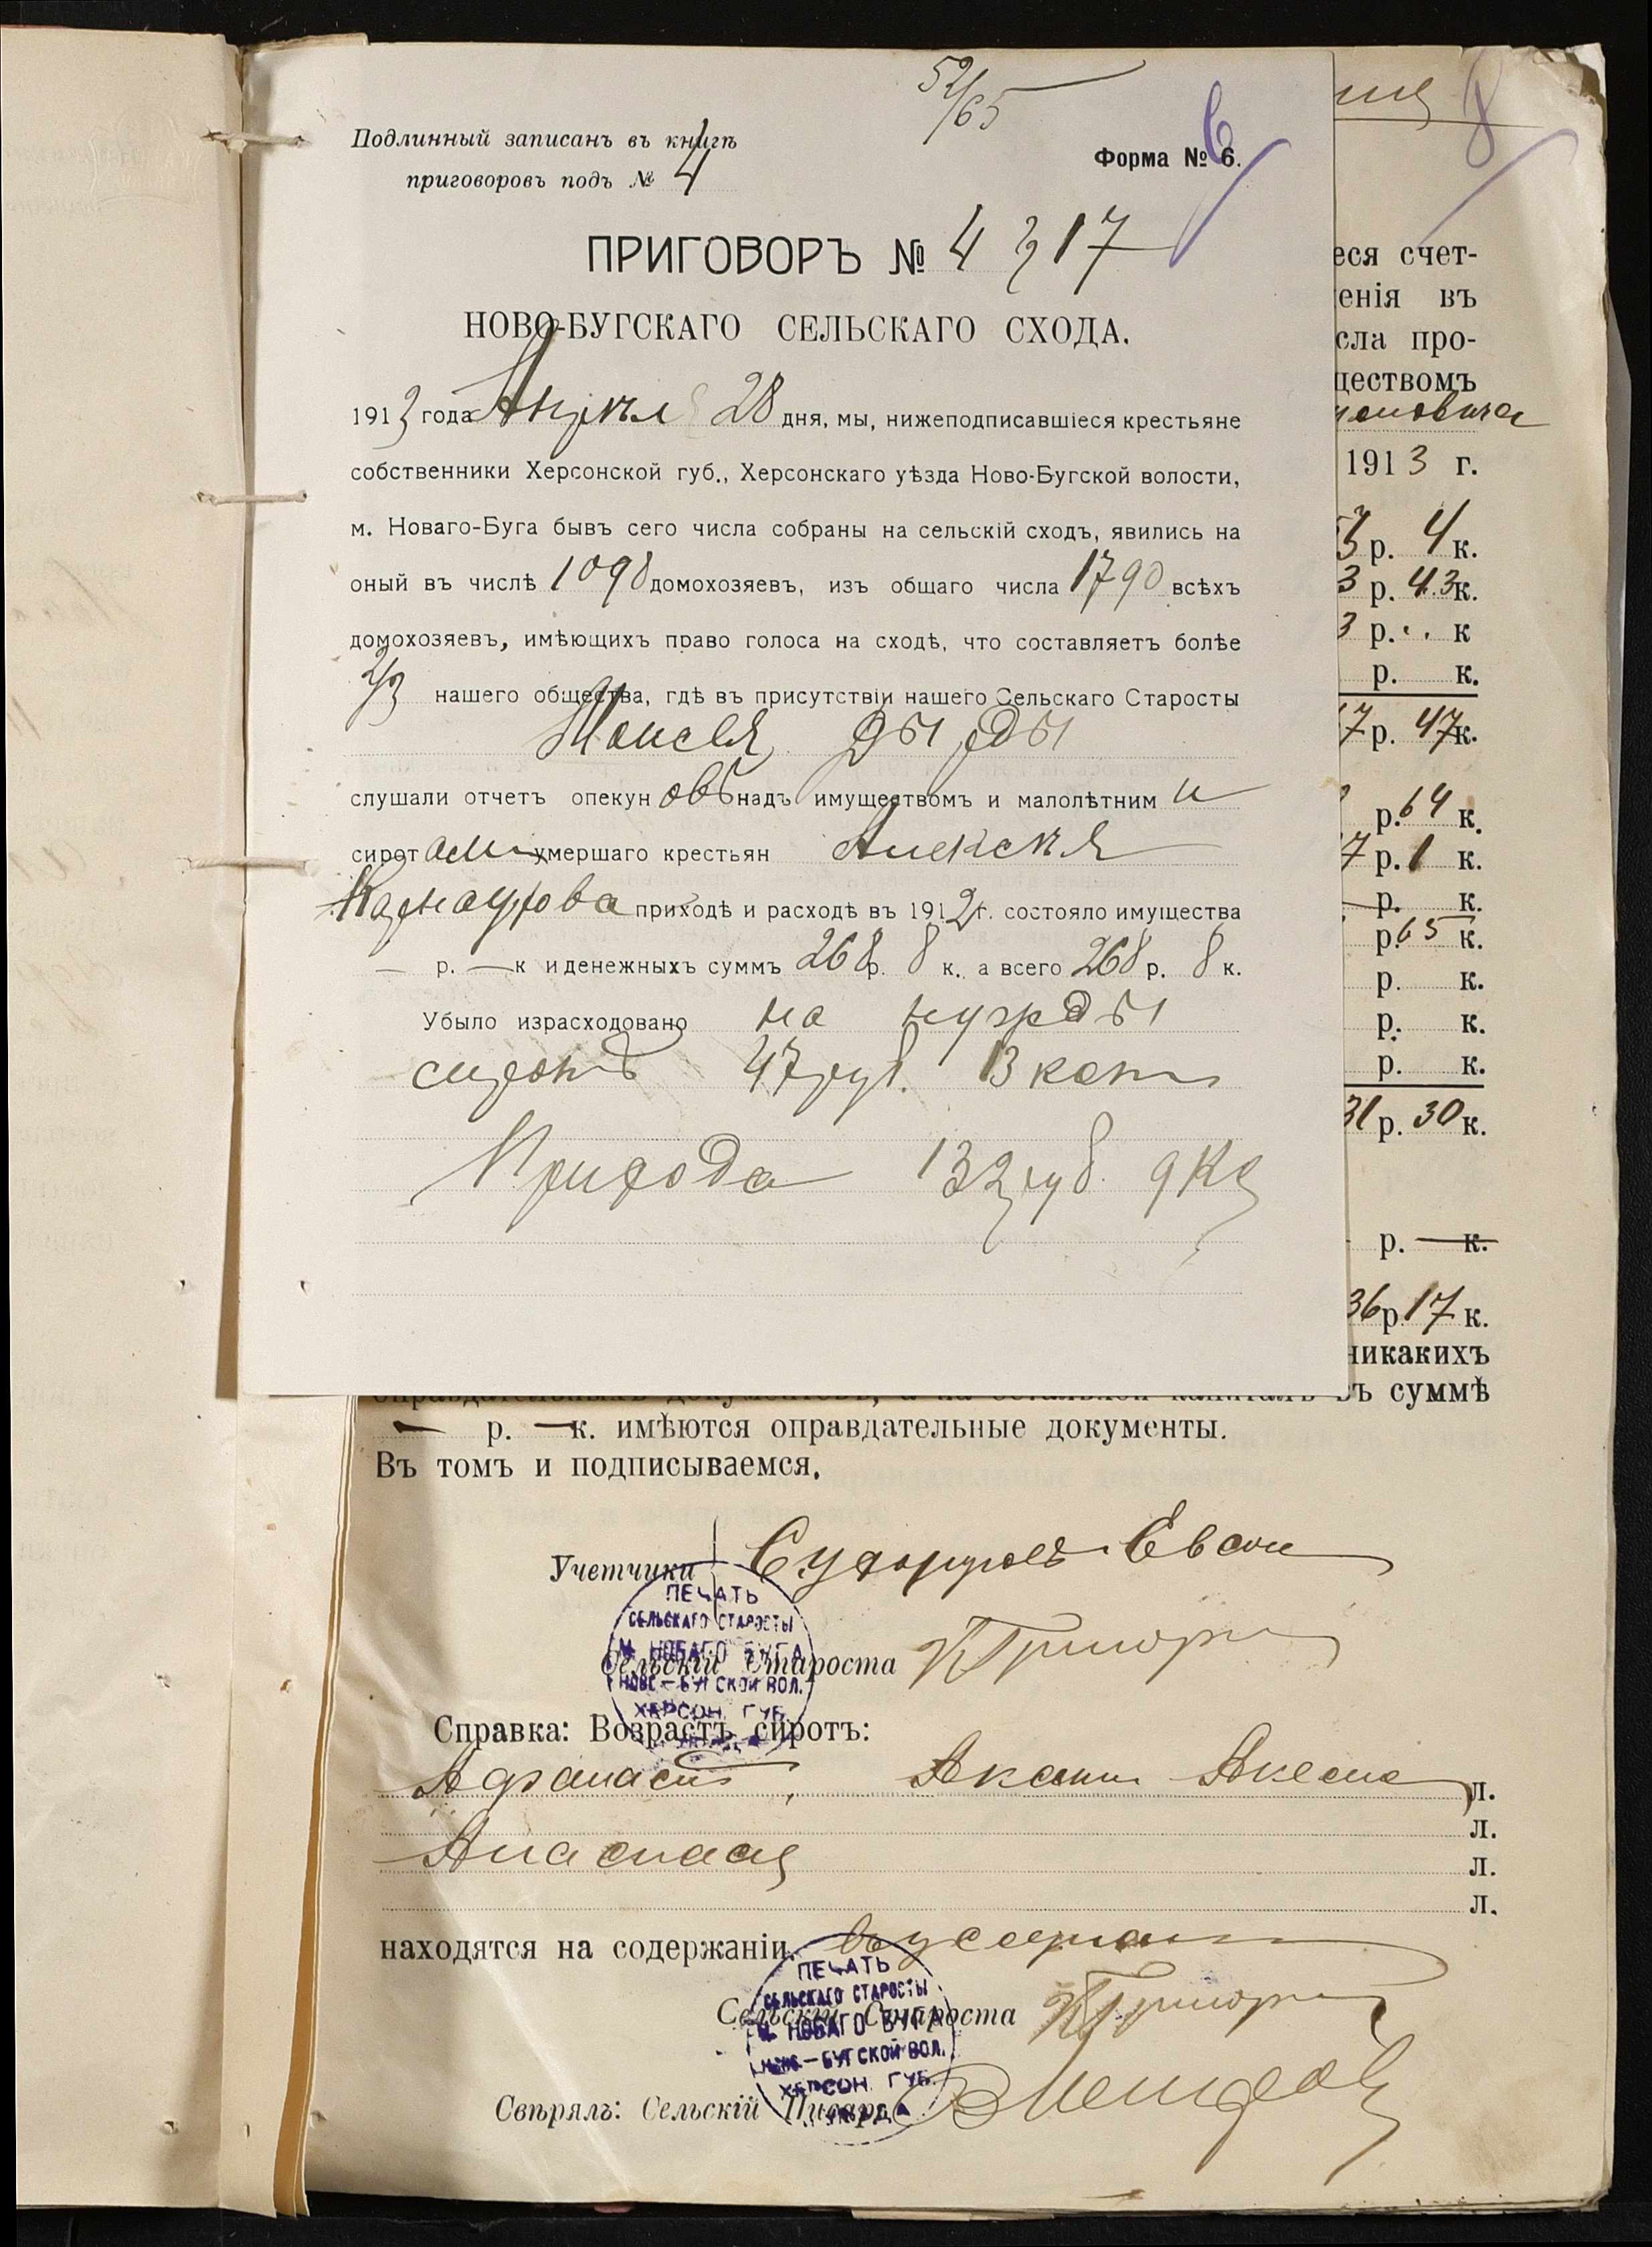 52/65
Подлинный записанъ въ книгѣ
приговоровъ подъ № 4
Форма № 6.
6
8
ПРИГОВОРЪ № 4217
НОВО-БУГСКАГО СЕЛЬСКАГО СХОДА.
1913 года Апрѣля 28 дня, мы, нижеподписавшіеся крестьяне
собственники Херсонской губ., Херсонскаго уѣзда Ново-Бугской волости,
м. Новаго-Буга бывъ сего числа собраны на сельскій сходъ, явились на
оный въ числѣ 1098 домохозяевъ, изъ общаго числа 1790 всѣхъ
домохозяевъ, имѣющихъ право голоса на сходѣ, что составляетъ болѣе
2/3 нашего общества, гдѣ въ присутствіи нашего Сельскаго Старосты
Моисея Дыды
слушали отчетъ опекуновъ надъ имуществомъ и малолѣтними
сиротами умершаго крестьян Алексѣя
Карнаухова приходѣ и расходѣ въ 1912 г. состояло имущества
— р. — к и денежныхъ суммъ 268 р. 8 к. а всего 268 р. 8 к.
Убыло израсходовано на нужды
сиротъ 47 руб. 13 коп
Прихода 132 руб. 9 к
еся счет-
енія въ
сла про-
ществомъ
1913 г.
3 р. 4 к.
3 р. 43 к.
3 р. .. к
р. к.
7 р. 47 к.
р. 64 к.
7 р. 1 к.
р. к.
р. 65 к.
р. к.
р. к.
р. к.
31 р. 30 к.
р. — к.
36 р 17 к.
никакихъ
оправдательныхъ документовъ, а на остальной капиталъ въ суммѣ
— р. — к. имѣются оправдательные документы.
Въ томъ и подписываемся.
Учетчики
Сельскій Староста
ПЕЧАТЬ
СЕЛЬСКАГО СТАРОСТЫ
М. НОВАГО БУГА
НОВО-БУГСКОЙ ВОЛ.
ХЕРСОН. ГУБ.
Справка: Возрастъ сиротъ:
Афанасій, л.
л.
Анастасія л.
л.
находятся на содержаніи.
Сельскій Староста
ПЕЧАТЬ
СЕЛЬСКАГО СТАРОСТЫ
М. НОВАГО БУГА
НОВО-БУГСКОЙ ВОЛ.
ХЕРСОН. ГУБ.
Свѣрялъ: Сельскій Писарь